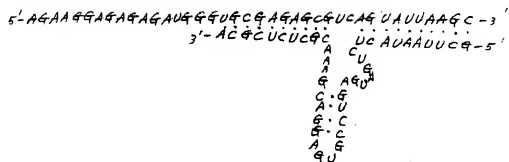 5'-AGAAGGAGAGAGAUGGGUGCGAGAGCGUCAGUAUUAAGC-3'
3'-ACGCUCUCGC UC AUAAUUCG-5'
A C
A U
A G A
G AGU
C·G
A U
G·C
G·C
A G
GU